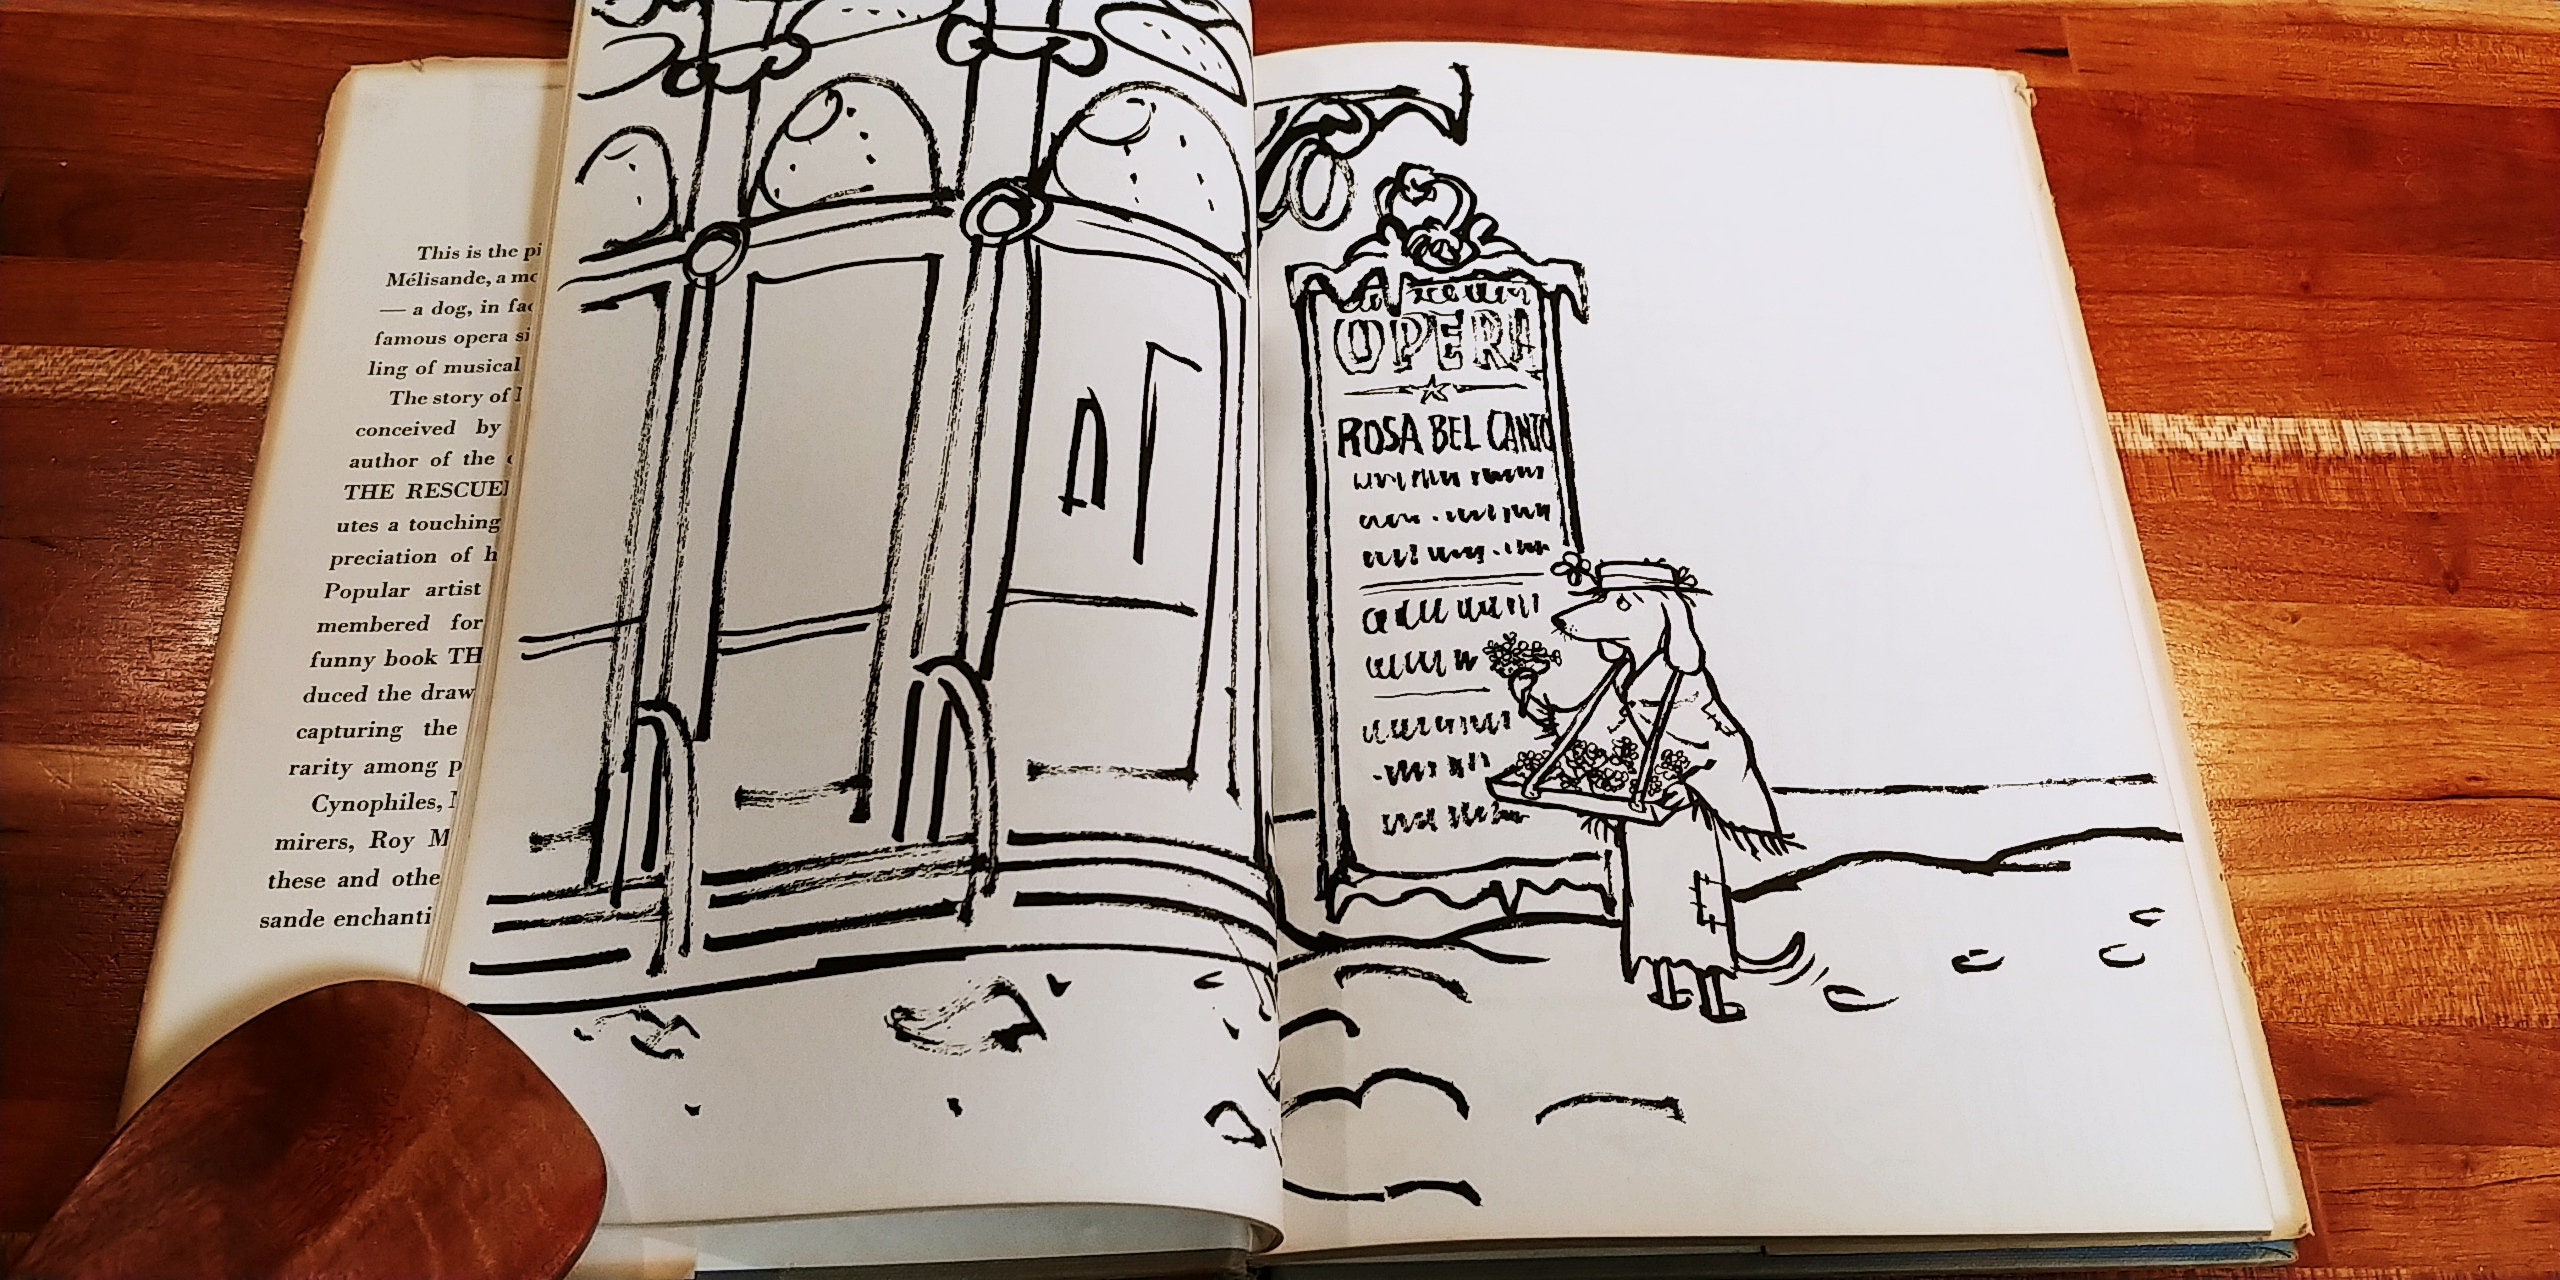 This is the pi
Mélisande, a mo
— a dog, in fac
famous opera si
ling of musical
The story of
conceived by
author of the
THE RESCUE
utes a touching
preciation of h
Popular artist
membered for
funny book TH
duced the draw
capturing the
rarity among p
Cynophiles,
mirers, Roy M
these and othe
sande enchanti
OPERA
ROSA BEL CANTO